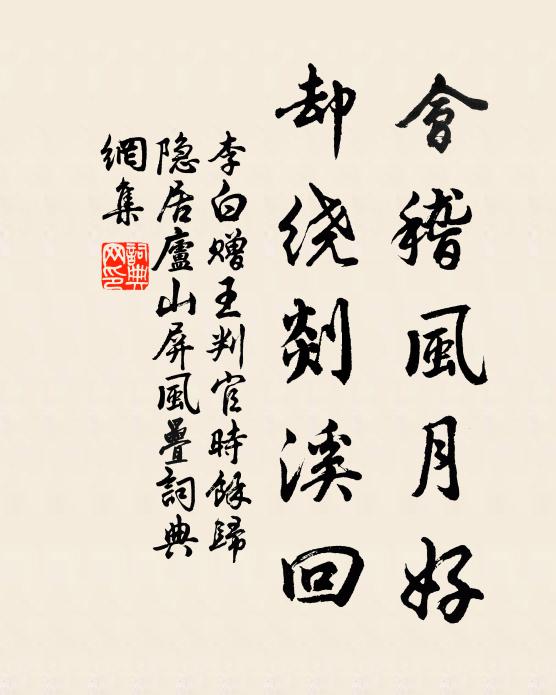 會稽風月好
却绕剡溪回
李白赠王判官時餘歸
隐居廬山屏風疊詞典
網集
詞典網印